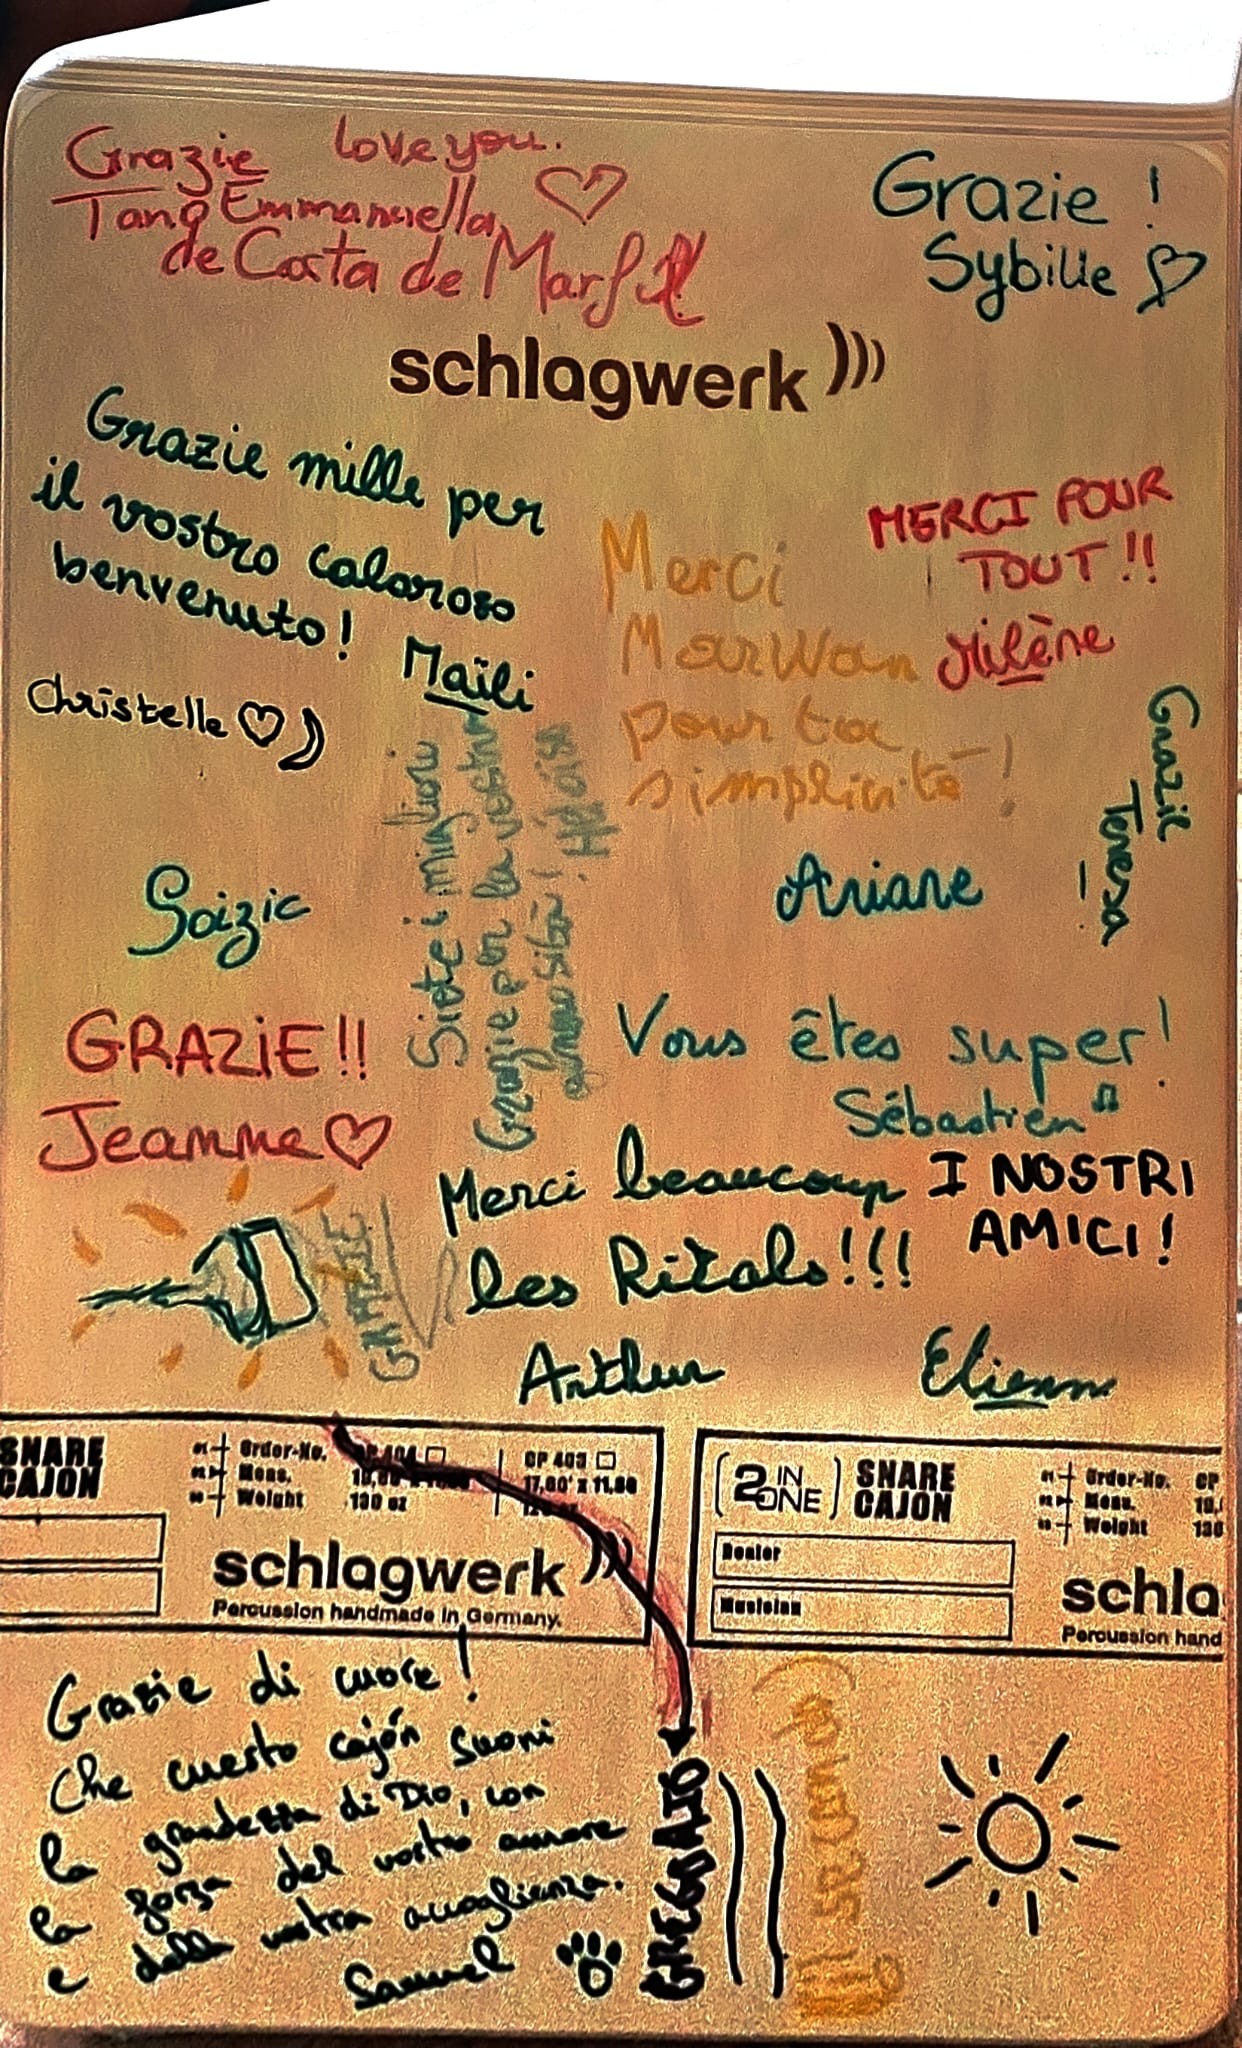 Grazie love you.
Tano Emmanuella
de Costa de Marfil
Grazie !
Sybille
schlagwerk
Grazie mille per
il vostro caloroso
benvenuto !
Maïli
Merci
Marwan
pour ta
simplicité !
MERCI POUR
TOUT !!
Milène
Christelle
Siete i migliori
Grazie per la vostra
generosità ! Héloïse
Grazie
Teresa
Soizic
Ariane
GRAZIE !!
Jeanne
Vous êtes super !
Sébastien
Merci beaucoup
les Ritals !!!
Arthur
I NOSTRI
AMICI !
GRAZIE
SNARE
CAJON
Order-No.
Meas.
Weight 130 oz
CP 403
17,60' x 11.80
schlagwerk
Percussion handmade in Germany.
2 IN ONE
SNARE
CAJON
Dealer
Musician
Order-No. CP
Meas. 10.
Weight 130
schla
Percussion hand
Grazie di cuore !
Che cuesto cajón suoni
la grandezza di Dio, con
la forza del vostro amore
e della vostra accoglienza.
Samuel